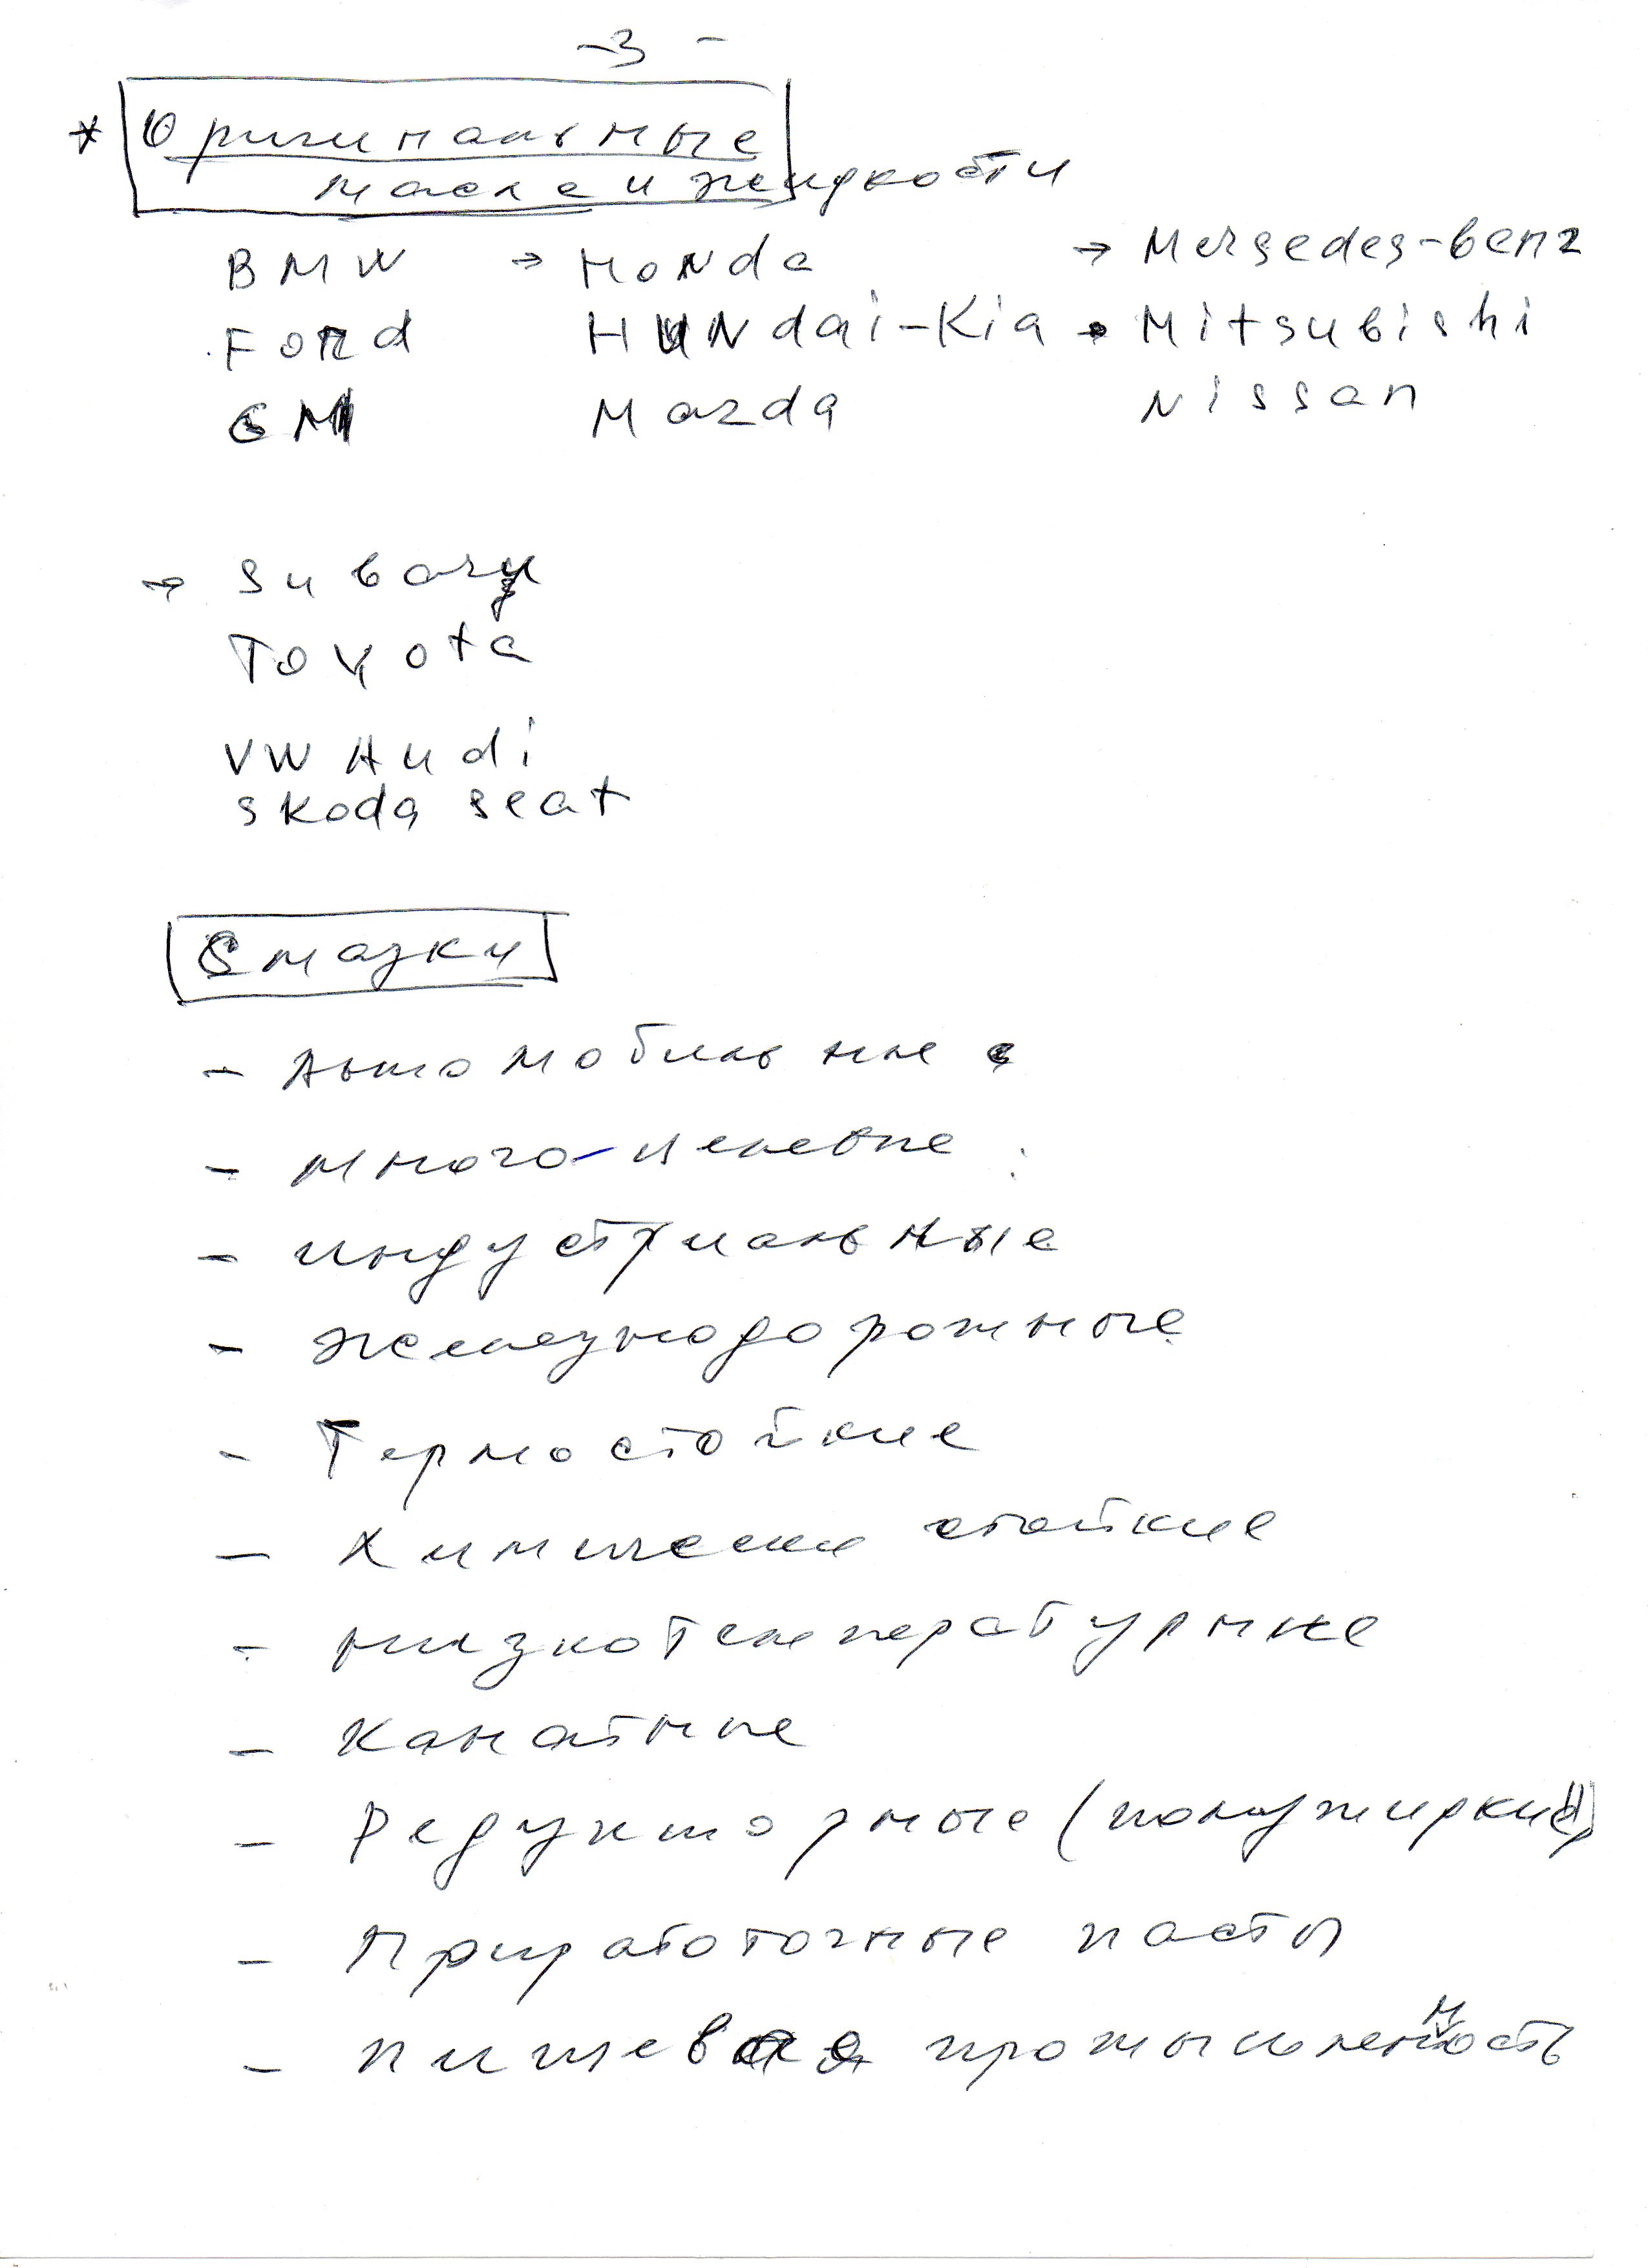 - 3 -
* Оригинальные
масла и жидкости
BMW → Honda → Mersedes-benz
Ford HUNdai-Kia • Mitsubishi
GM Mazda Nissan
→ Subaru
Toyota
VW Audi
skoda seat
Смазки
- Автомобильные
- много-целевые
- индустриальные
- железнодорожные
- Термостойкие
- Химически стойкие
- низкотемпературные
- Канатные
- Редукторные (полужидкие)
- Приработочные пасты
- пищевая промышленность